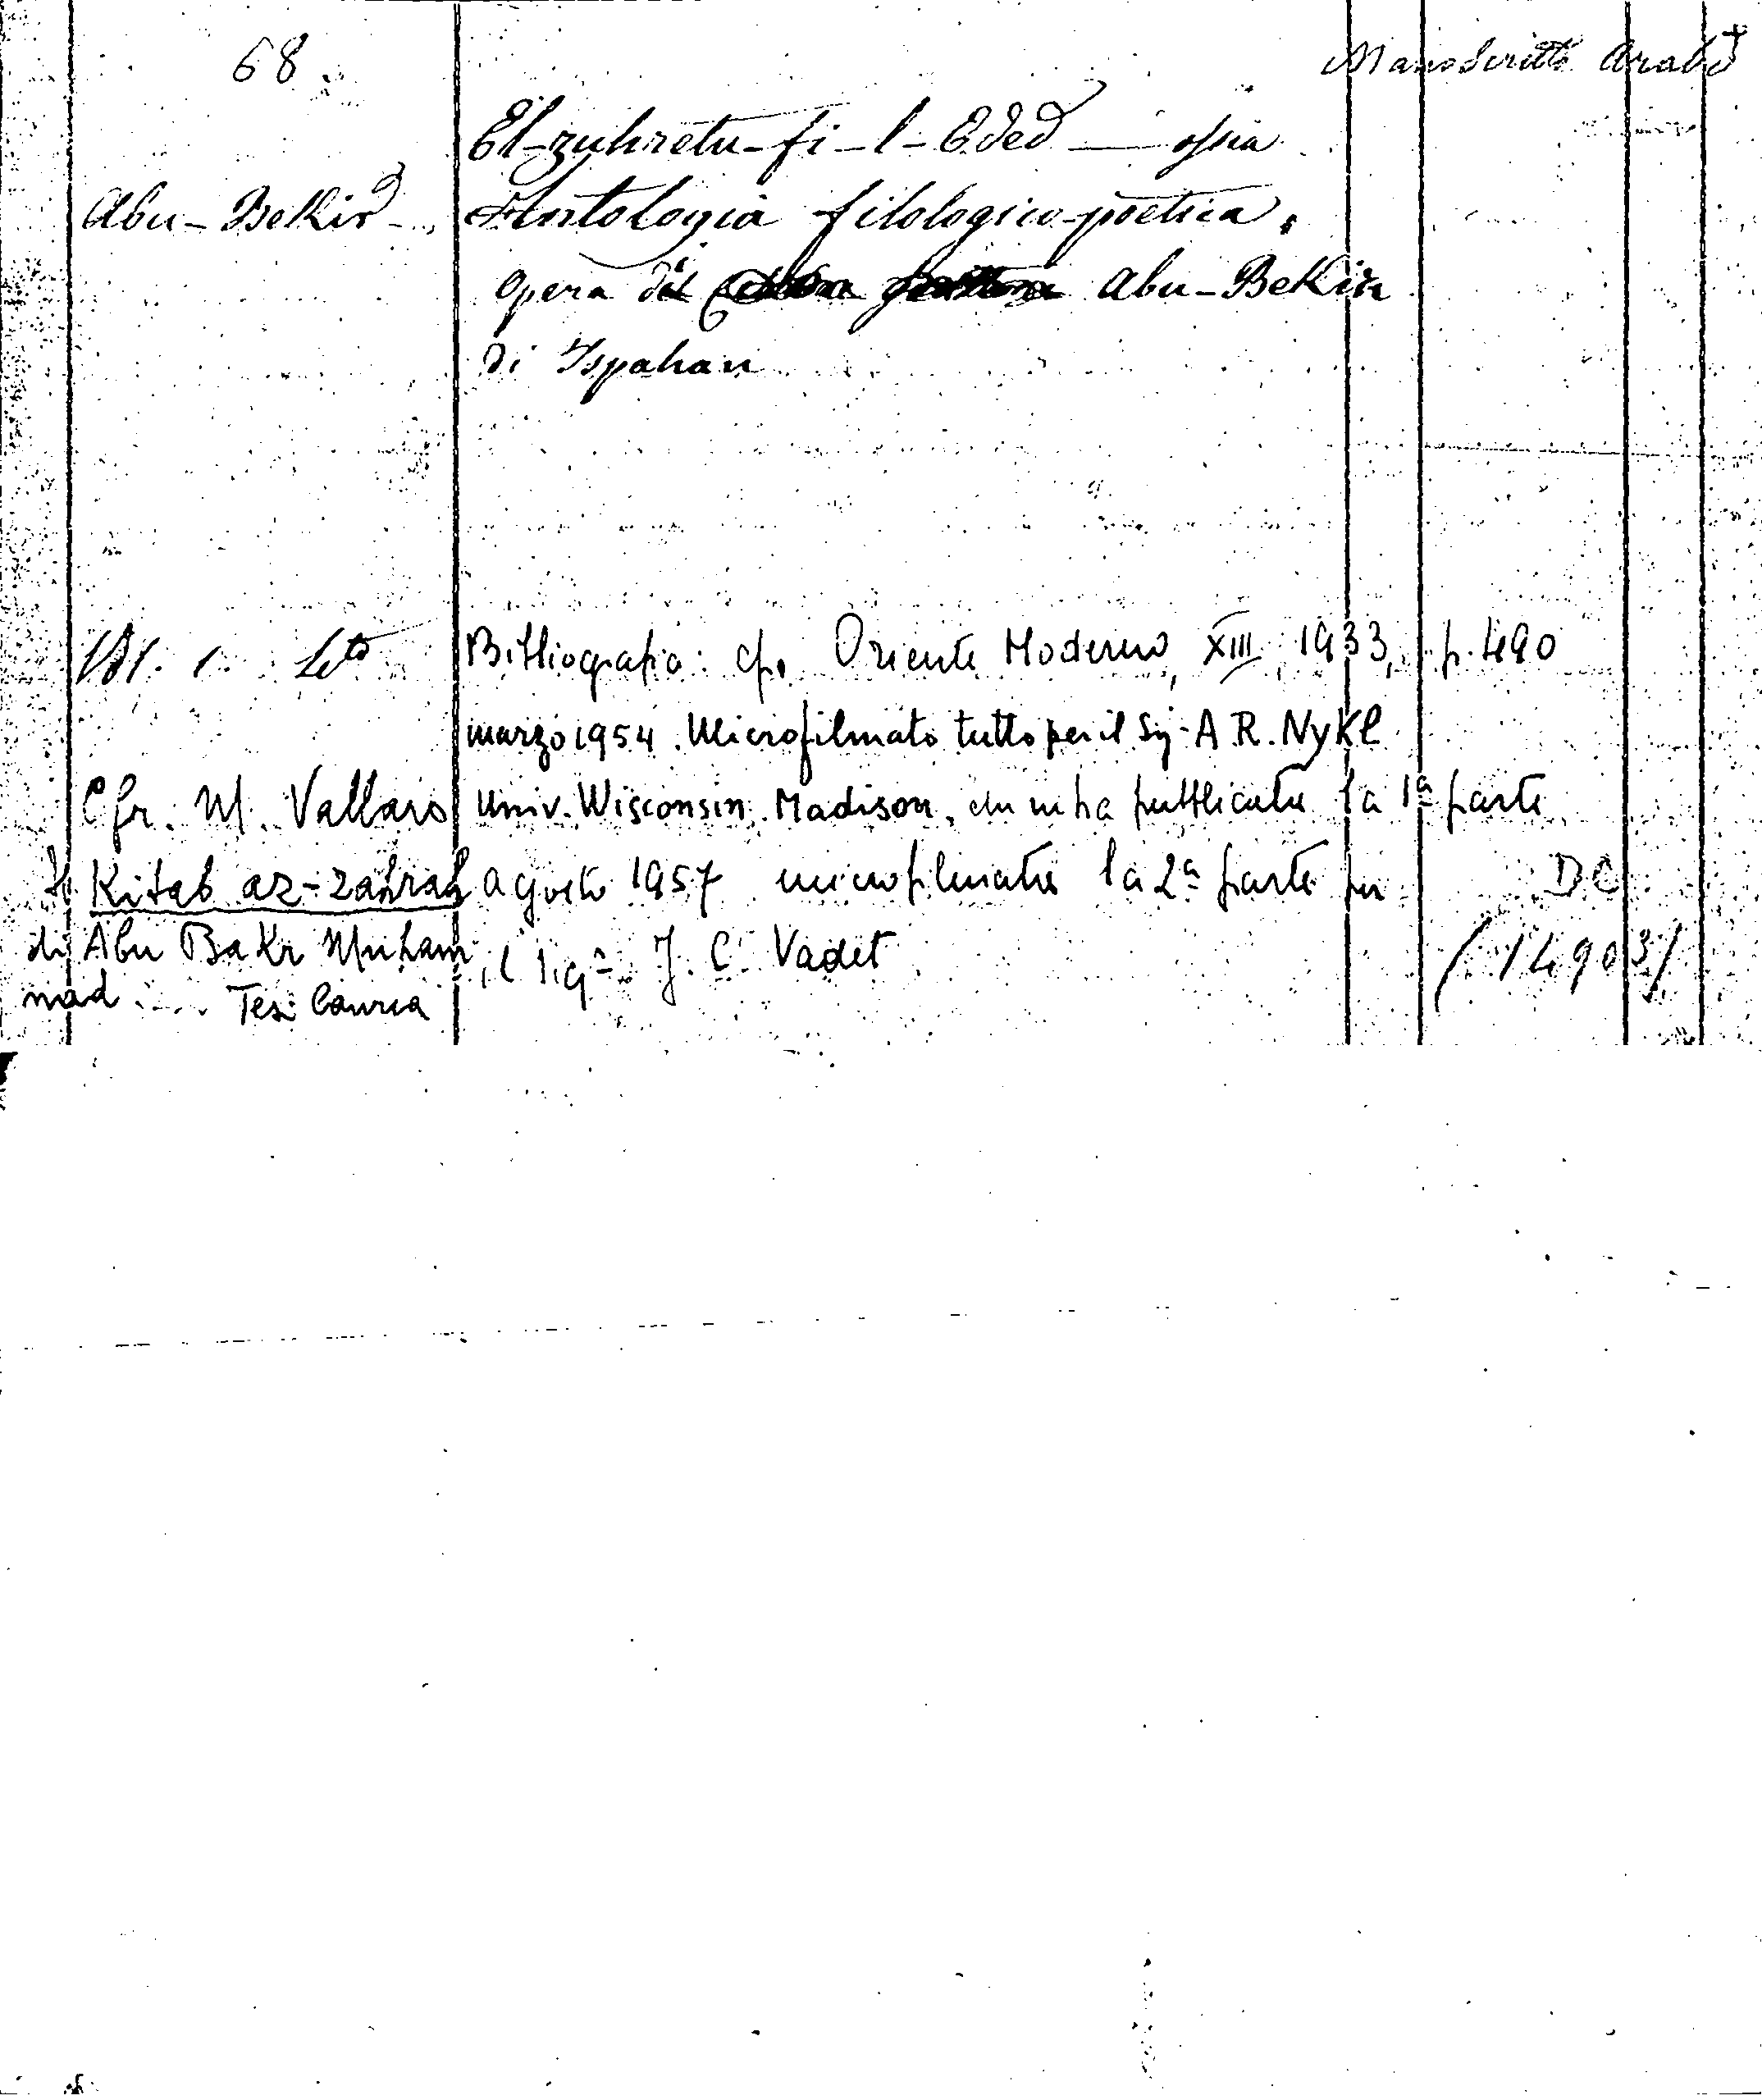 68
Manoscritti Arabi
El-zuhretu-fi-l-Eded — ossia
Abu-Bekir - Antologia filologico-poetica,
opera di Abu-Bekir
di Ispahan
Vol. 1. Bibliografia: cfr. Oriente Moderno, XIII, 1933, p. 490
marzo 1954. Microfilmato tutto per il Sig. A.R. Nykl
Cfr. M. Vallaro Univ. Wisconsin. Madison, che ne ha pubblicata la 1ª parte
Il Kitab az-zahrah agosto 1957 microfilmata la 2ª parte per D.C.
di Abu Bakr Muham il sigr. J. C. Vadet (14903)
mad .... Tesi laurea